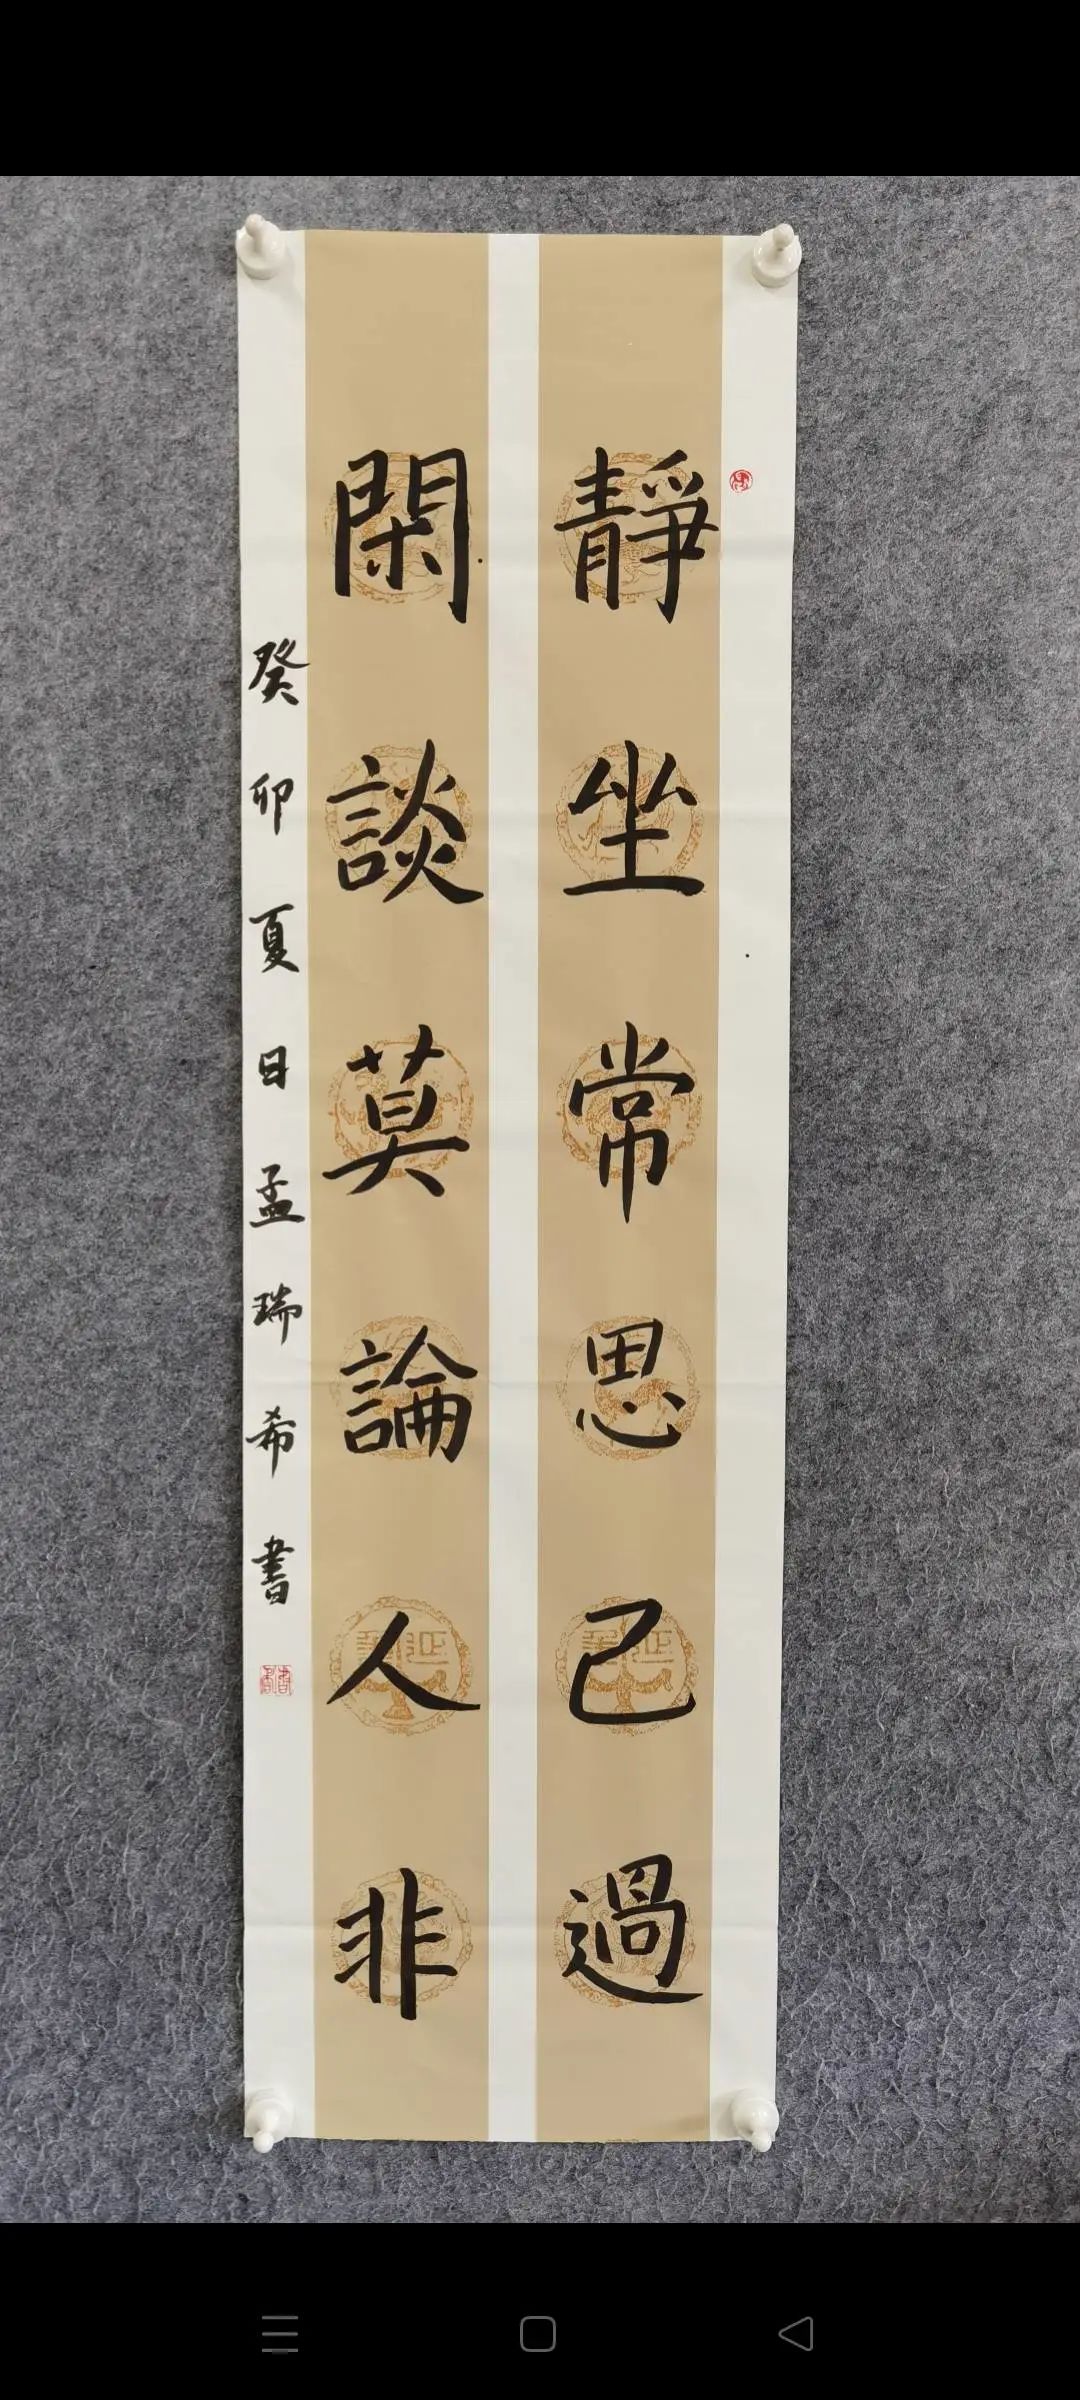 靜坐常思己過
閑談莫論人非
癸卯夏日孟瑞希書